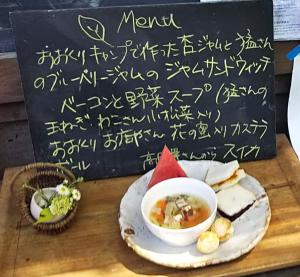 Menu
おおくりキャンプで作った杏ジャムと猛さん
のブルーベリージャムの ジャムサンドウィッチ
ベーコンと野菜スープ(猛さんの
玉ねぎ わこさん小松菜入り)
おおくり お店やさん 花の蜜入りカステラ
ボール
さんから スイカ